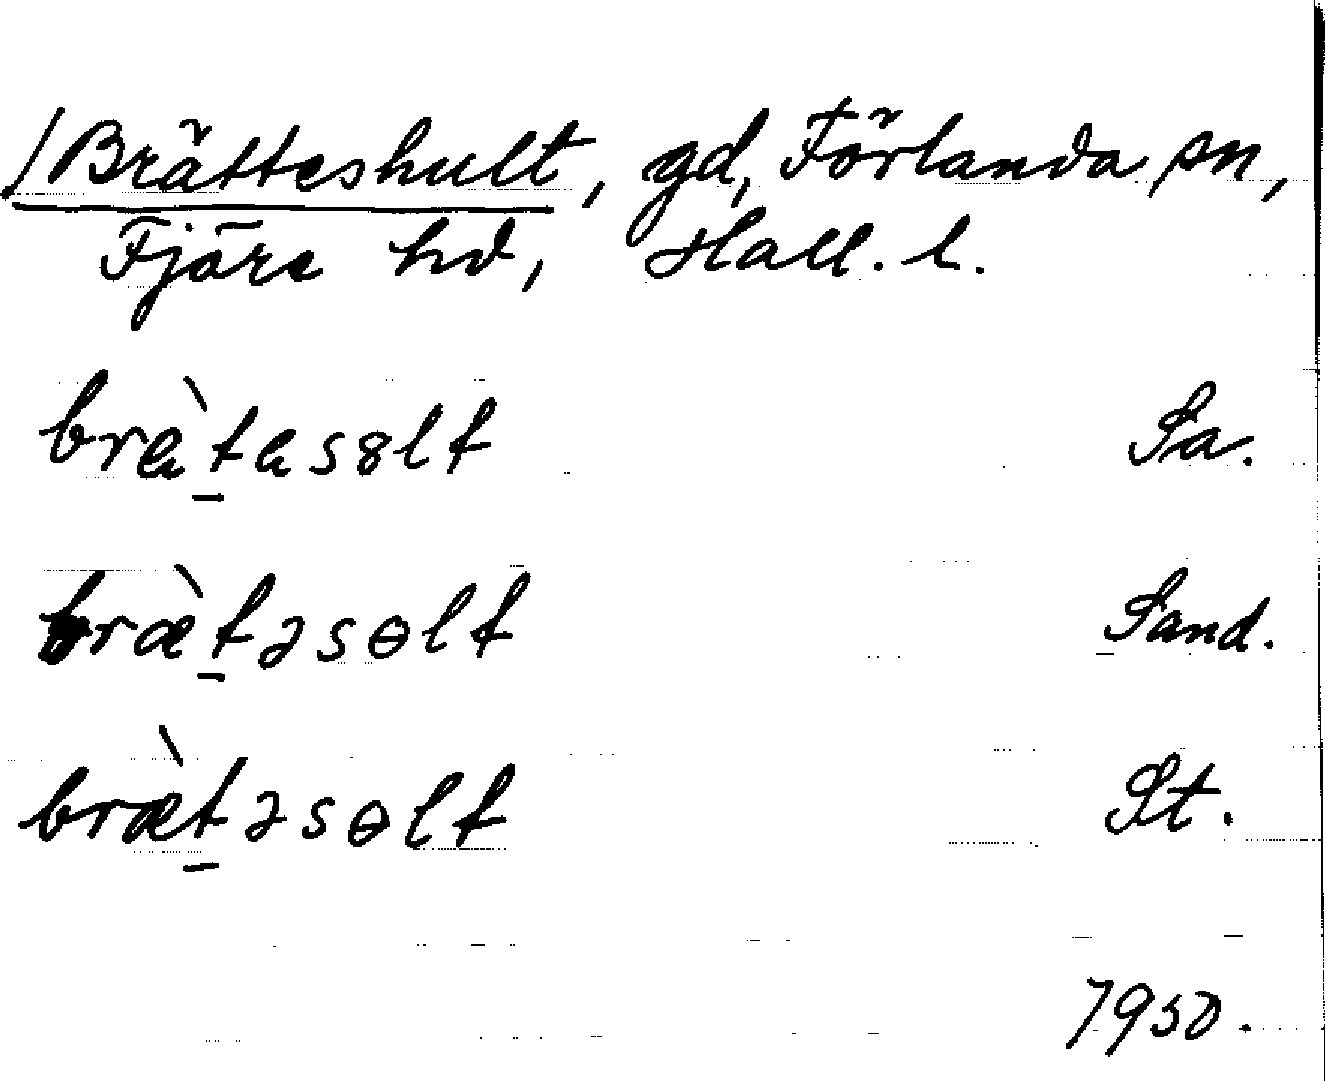 /Brätteshult, gd, Förlanda sn,
Fjäre hd, Hall. l.
brät̲asɵlt Sa.
bræ̀t̲əsɵlt Sand.
bræ̀t̲əsɵlt St.
1950.